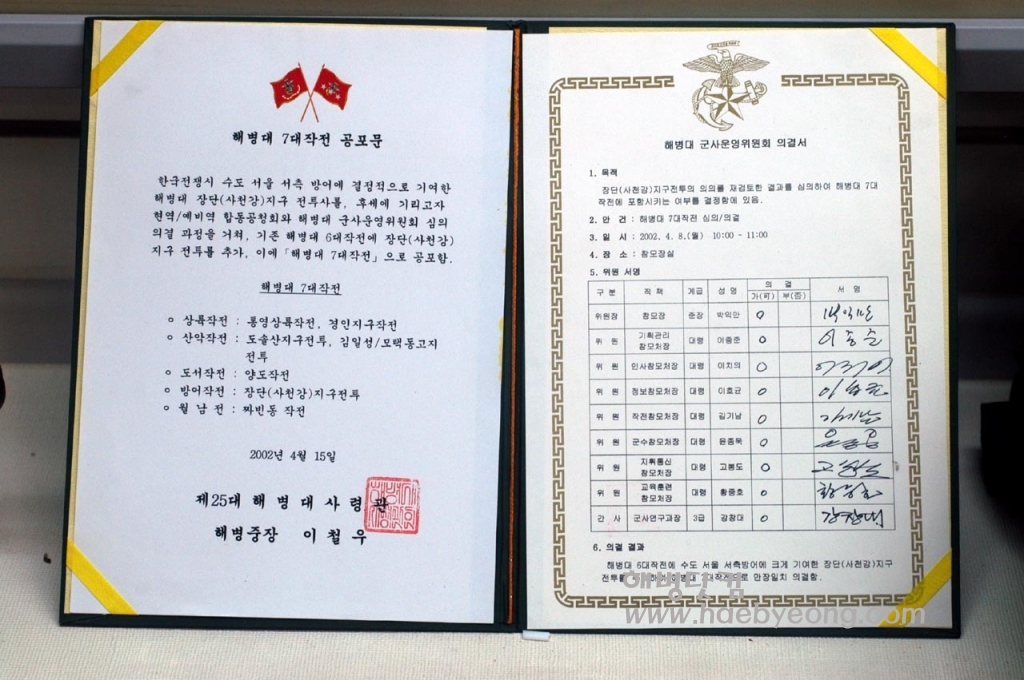 해병대 7대작전 공포문
한국전쟁시 수도 서울 서측 방어에 결정적으로 기여한
해병대 장단(사천강)지구 전투사를, 후세에 기리고자
현역/예비역 합동공청회와 해병대 군사운영위원회 심의
의결 과정을 거쳐, 기존 해병대 6대작전에 장단(사천강)
지구 전투를 추가, 이에 「해병대 7대작전」으로 공포함.
해병대 7대작전
o 상륙작전 : 통영상륙작전, 경인지구작전
o 산악작전 : 도솔산지구전투, 김일성/모택동고지
전투
o 도서작전 : 양도작전
o 방어작전 : 장단(사천강)지구전투
o 월 남 전 : 짜빈동 작전
2002년 4월 15일
제25대 해병대사령관
해병중장 이 철 우
해병대 군사운영위원회 의결서
1. 목적
장단(사천강)지구전투의 의의를 재검토한 결과를 심의하여 해병대 7대
작전에 포함시키는 여부를 결정함에 있음.
2. 안 건 : 해병대 7대작전 심의/의결
3. 일 시 : 2002. 4. 8.(월) 10:00 - 11:00
4. 장 소 : 참모장실
5. 위원 서명
구 분 직 책 계급 성 명 의 결 서 명
가(可) 부(否)
위원장 참모장 준장 박익만 O
위 원 기획관리 참모처장 대령 이중준 O
위 원 인사참모처장 대령 이치의 O
위 원 정보참모처장 대령 이호균 O
위 원 작전참모처장 대령 김기남 O
위 원 군수참모처장 대령 윤종묵 O
위 원 지휘통신 참모처장 대령 고봉도 O
위 원 교육훈련 참모처장 대령 황중호 O
간 사 군사연구과장 3급 강창대 O
6. 의결 결과
해병대 6대작전에 수도 서울 서측방어에 크게 기여한 장단(사천강)지구
전투를 해병대 대작전으로 만장일치 의결함.
해병닷컴
www.hdebyeong.com